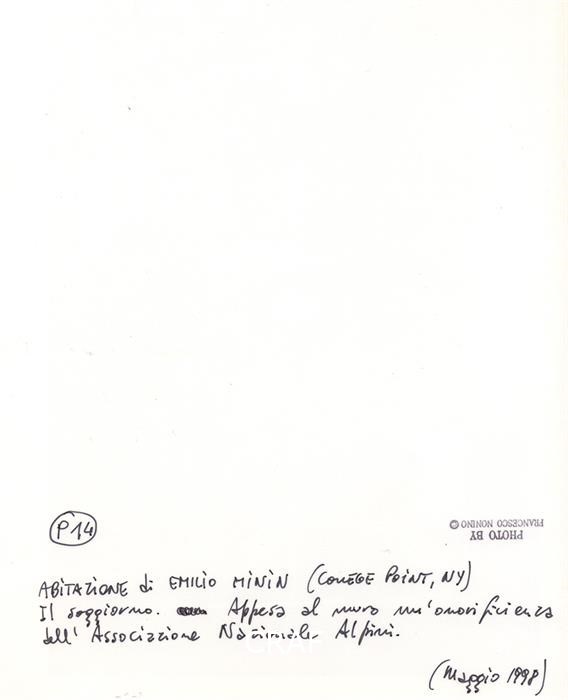 P14
PHOTO BY
FRANCESCO NONINO ©
ABITAZIONE di EMILIO MININ (COLLEGE POINT, NY)
Il soggiorno. Appesa al muro un'onorificienza
dell'Associazione Nazionale Alpini.
CRAF
(Maggio 1998)